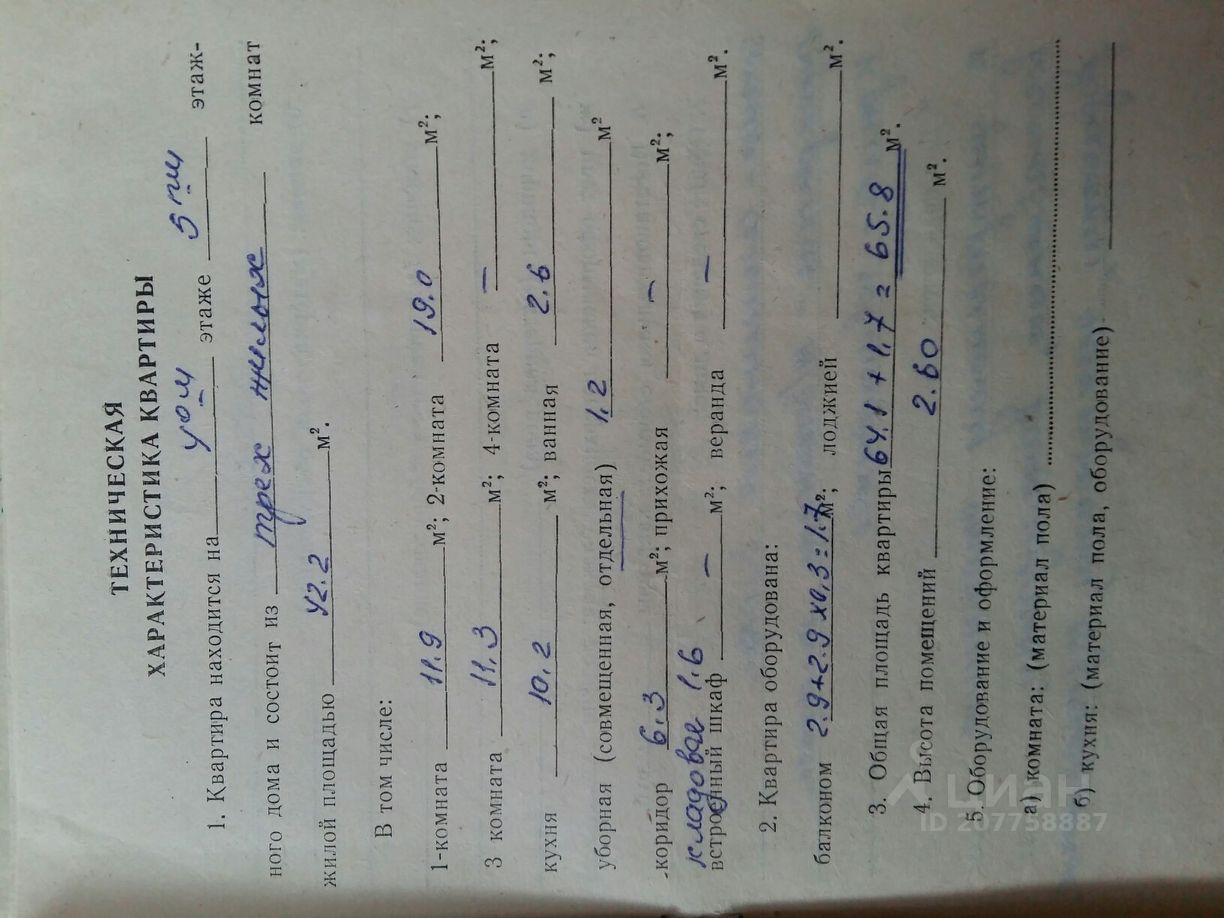 ТЕХНИЧЕСКАЯ
ХАРАКТЕРИСТИКА КВАРТИРЫ
1. Квартира находится на 4ом этаже 5ти этаж-
ного дома и состоит из трех жилых комнат
жилой площадью 42.2 м².
В том числе:
1-комната 11.9 м²; 2-комната 19.0 м²;
3 комната 11,3 м²; 4-комната — м²;
кухня 10,2 м²; ванная 2.6 м²;
уборная (совмещенная, отдельная) 1,2 м²
коридор 6,3 м²; прихожая — м²;
кладовая 1.6
встроенный шкаф — м²; веранда — м².
2. Квартира оборудована:
балконом 2.9+2.9x0,3=1.7 м²; лоджией м².
3. Общая площадь квартиры 64,1+1,7=65.8 м².
4. Высота помещений 2.60 м².
5. Оборудование и оформление:
а) комната: (материал пола)
б) кухня: (материал пола, оборудование)
циан
ID 207758887